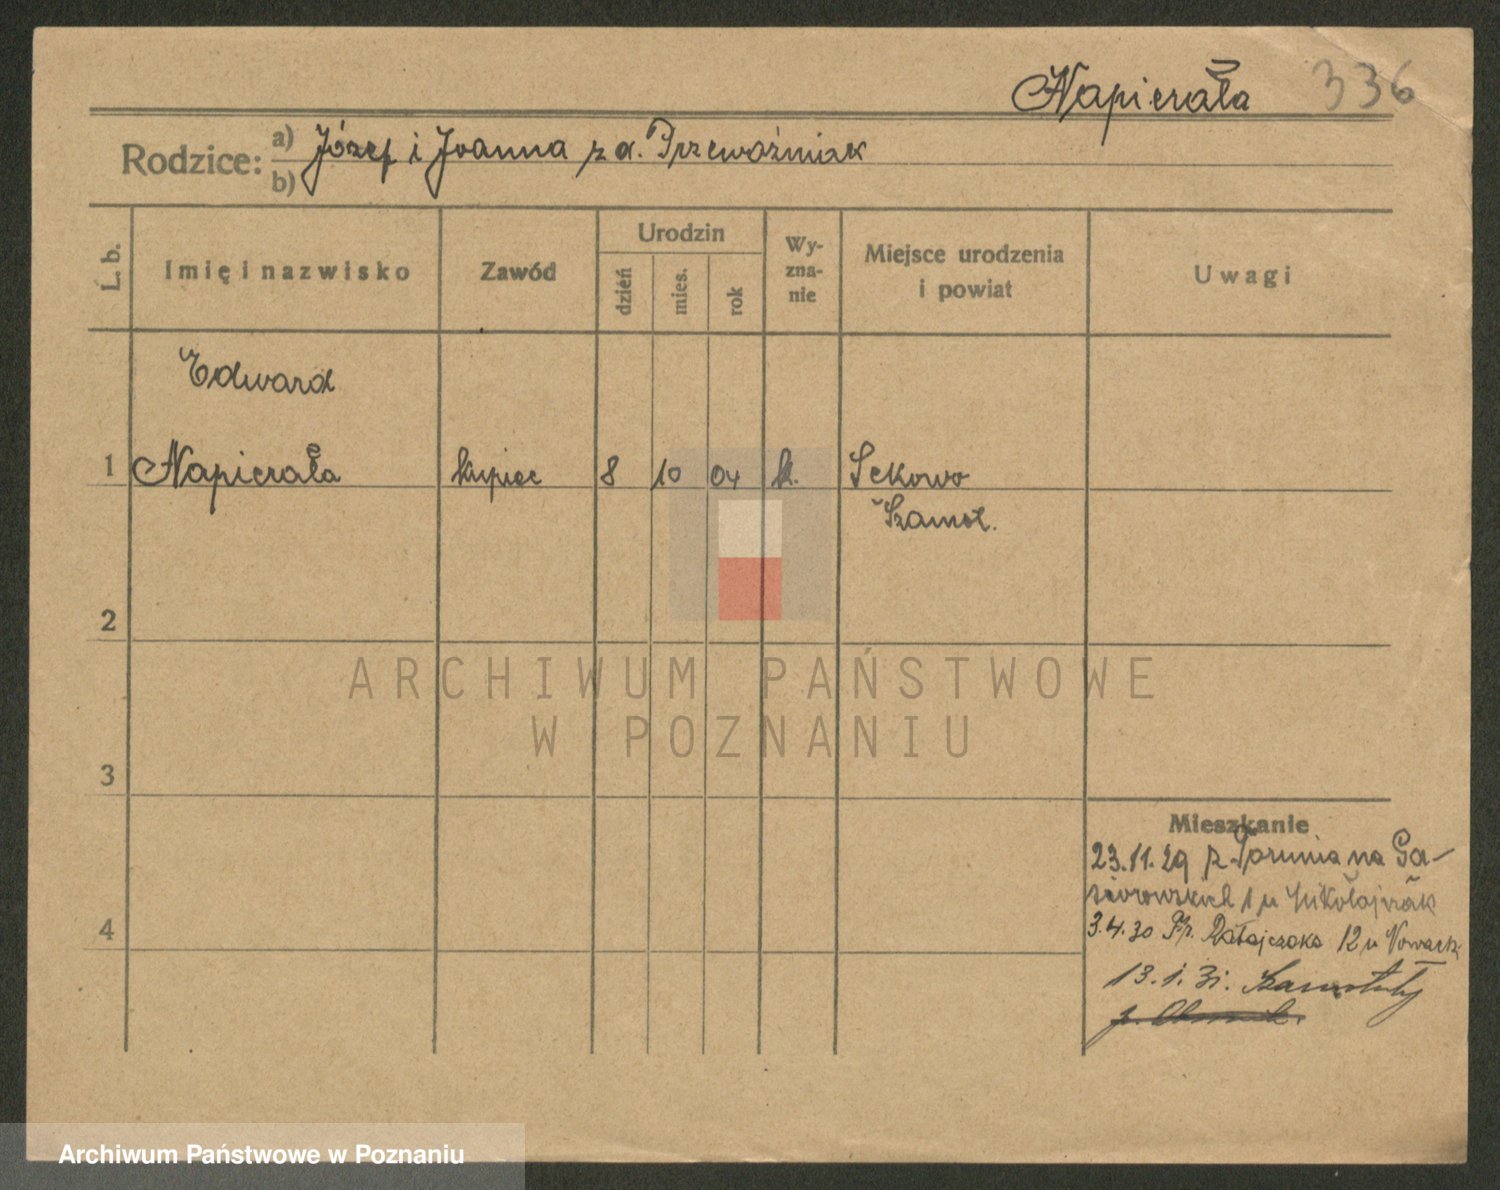 Napierała 336
Rodzice: a) Józef i Joanna z d. Przewoźniak
b)
L. b. Imię i nazwisko Zawód Urodzin dzień mies. rok Wyznanie Miejsce urodzenia i powiat Uwagi
Edward
1 Napierała kupiec 8 10 04 k. Sekowo
Szamot.
2
3
4
Mieszkanie
23.11.29 z Torunia na Gą-
siorowskich 1 u Mikołajczak
3.4.30 Fr. Ratajczaka 12 u Nowack.
13.1.31. Szamotuły
ARCHIWUM PAŃSTWOWE
W POZNANIU
Archiwum Państwowe w Poznaniu